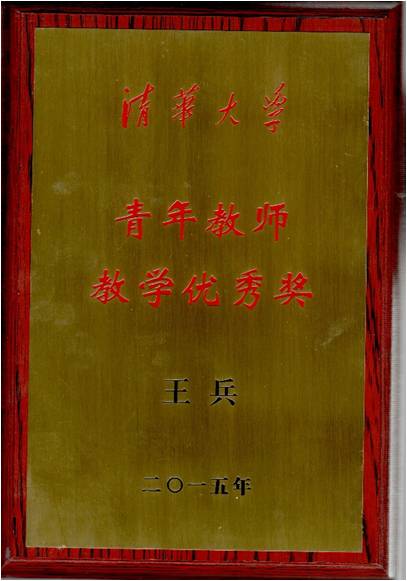 清华大学
青年教师
教学优秀奖
王兵
二〇一五年